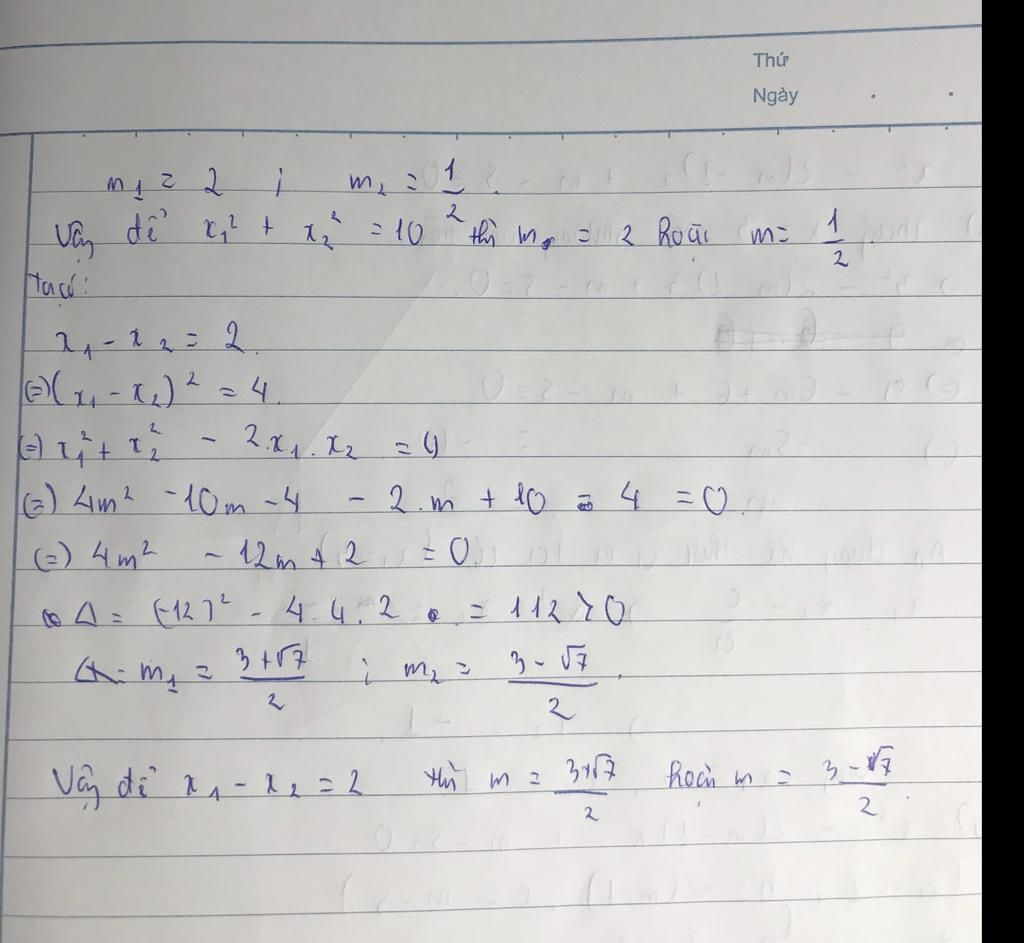 Thứ
Ngày
m₁ = 2 ; m₂ = 1/2.
Vậy để x₁² + x₂² = 10 thì m = 2 hoặc m = 1/2.
Ta có:
x₁ - x₂ = 2.
(=) (x₁ - x₂)² = 4.
(=) x₁² + x₂² - 2.x₁.x₂ = 4
(=) 4m² - 10m - 4 - 2.m + 10 - 4 = 0.
(=) 4m² - 12m + 2 = 0.
Δ = (-12)² - 4.4.2 = 112 > 0
m₁ = (3+√7)/2 ; m₂ = (3-√7)/2.
Vậy để x₁ - x₂ = 2 thì m = (3+√7)/2 hoặc m = (3-√7)/2.